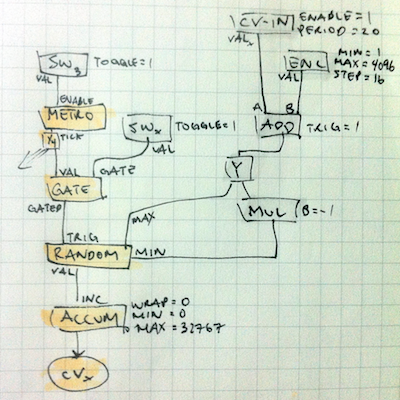 CV-IN ENABLE=1
PERIOD=20
VALx
SW3 TOGGLE=1
VAL
ENC MIN=1
MAX=4096
STEP=16
VAL
ENABLE
METRO
TICK
Y4
SWx TOGGLE=1
VAL
A B
ADD TRIG=1
VAL GATE
GATE
GATED
Y
MAX
MUL B=-1
TRIG
RANDOM MIN
VAL
INC WRAP=0
ACCUM MIN=0
MAX=32767
CVx